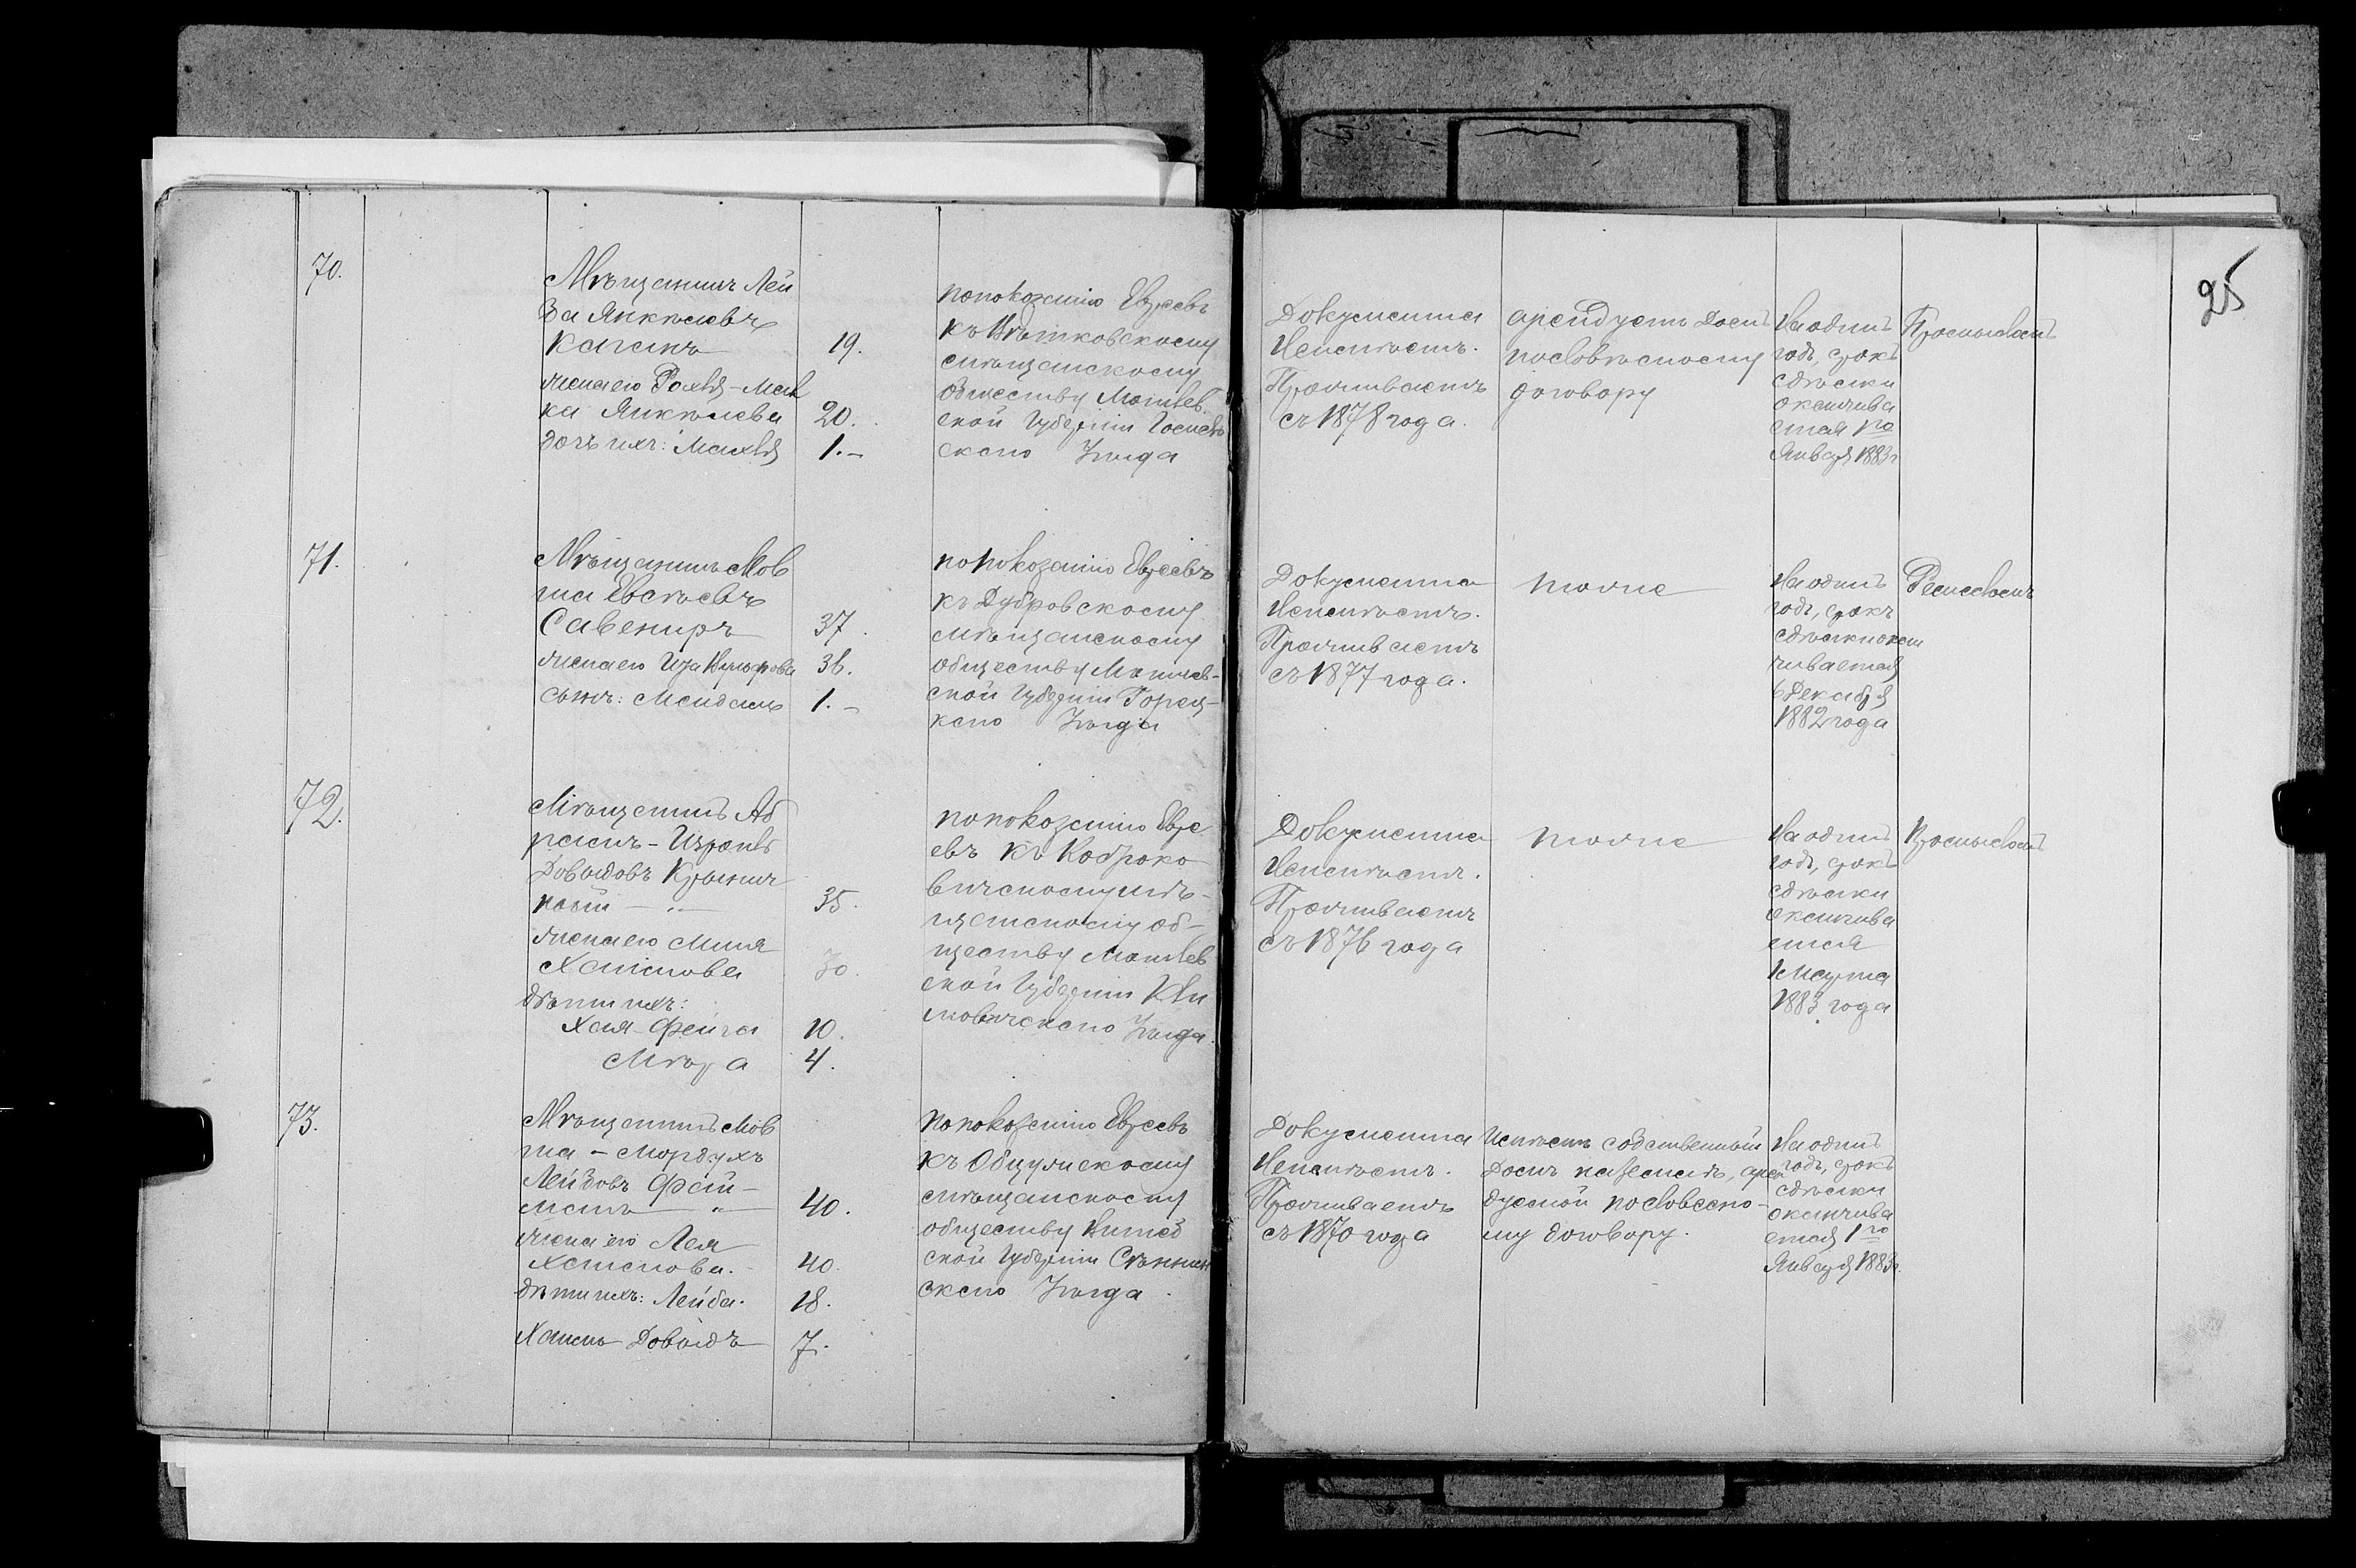 25
70.
Мѣщанинъ Лей
ба Янкелевъ
Каганъ 19.
жена его Рохля-Мал
ка Янкелева 20.
дочь ихъ: Махля 1.-
по показанію Евреевъ
къ Вѣтковскому
мѣщанскому
обществу Могилев
ской Губерніи Гомель
скаго Уѣзда
Документа
Неимѣетъ.
Проживаетъ
съ 1878 года.
арендуетъ домъ
пословѣсному
договору
На одинъ
годъ, срокъ
сдѣлки
оканчива
ется 1го
Января 1883 г
Промысломъ
71.
Мѣщанинъ Мов
ша Евсѣевъ
Савениръ 37.
жена его 36.
сынъ: Мендель 1.-
по показанію Евреевъ
къ Дубровскому
мѣщанскому
обществу Могилев-
ской Губерніи Горец-
каго Уѣзда
Документа
Неимѣетъ.
Проживаетъ
съ 1877 года.
тоже
На одинъ
годъ, срокъ
сдѣлки окан
чивается
6 Декабря
1882 года
Ремесломъ
72.
Мѣщанинъ Аб
рамъ-Израиль
Довыдовъ Крынич
ный - " - 35.
жена его Миня
Хаимова 30.
дѣти ихъ:
Хая-Фейга 10.
Мѣра 4.
по показанію Евре
евъ къ
вичскому мѣ-
щанскому об-
ществу Могилев
ской Губерніи Кли
мовичскаго Уѣзда.
Документа
Неимѣетъ.
Проживаетъ
съ 1876 года
тоже
На одинъ
годъ, срокъ
сдѣлки
оканчива
ется
1 Марта
1883 года
Промысломъ
73.
Мѣщанинъ Мов
ша - Мордухъ
Лейбовъ Фей-
манъ - " - 40.
жена его Лея
Хаимова. 40.
дѣти ихъ: Лейба. 18.
Хаимъ Довыдъ 7.
по показанію Евреевъ
къ Обчужскому
мѣщанскому
обществу Витеб
ской Губерніи Сѣннин
скаго Уѣзда.
Документа
Неимѣетъ.
Проживаетъ
съ 1870 года
Имѣетъ собственный
домъ на землѣ, арен
дуемой по словесно-
му договору.
На одинъ
годъ, срокъ
сдѣлки
оканчива
ется 1го
Января 1883 г.